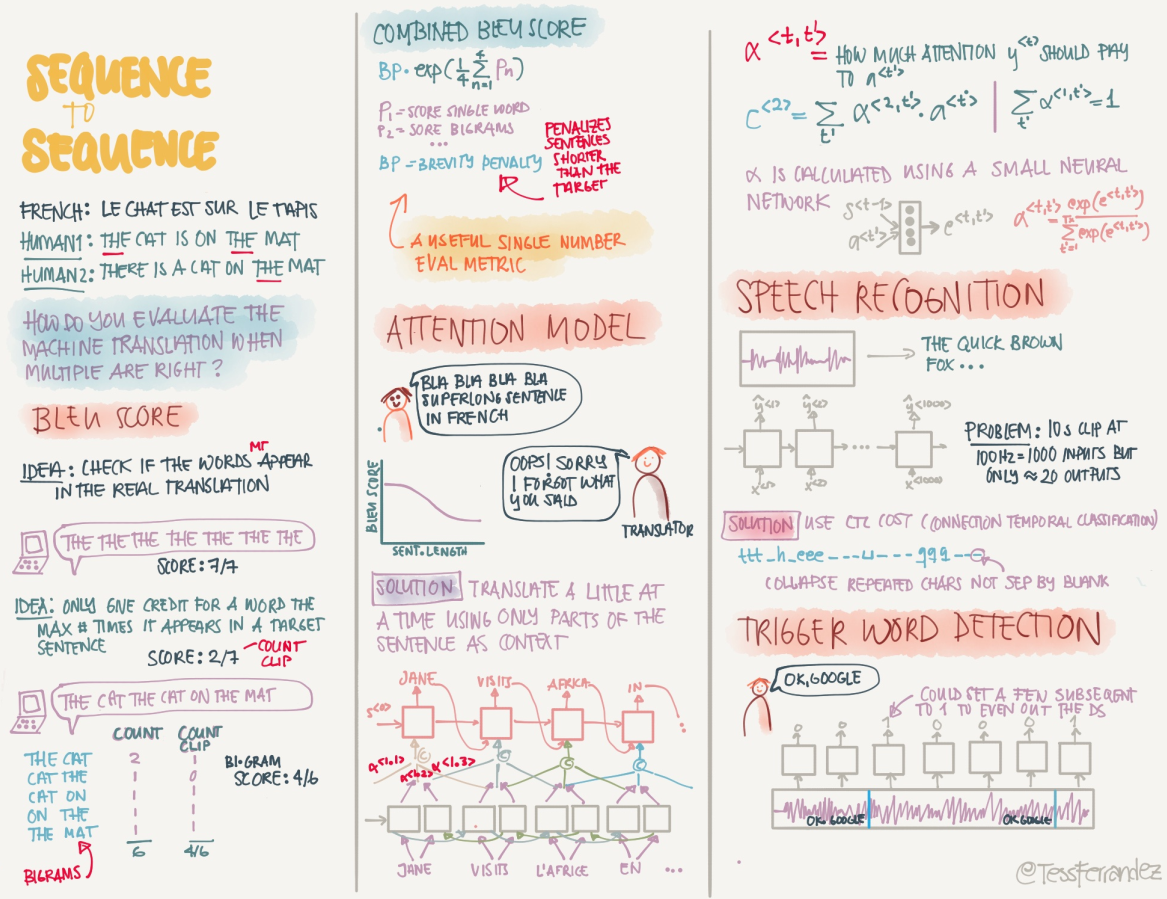 SEQUENCE
TO
SEQUENCE
FRENCH: LE CHAT EST SUR LE TAPIS
HUMAN1: THE CAT IS ON THE MAT
HUMAN2: THERE IS A CAT ON THE MAT
HOW DO YOU EVALUATE THE
MACHINE TRANSLATION WHEN
MULTIPLE ARE RIGHT?
BLEU SCORE
MT
IDEA: CHECK IF THE WORDS APPEAR
IN THE REAL TRANSLATION
THE THE THE THE THE THE THE
SCORE: 7/7
IDEA: ONLY GIVE CREDIT FOR A WORD THE
MAX # TIMES IT APPEARS IN A TARGET
SENTENCE
SCORE: 2/7
COUNT
CLIP
THE CAT THE CAT ON THE MAT
COUNT COUNT
CLIP
THE CAT 2 1
CAT THE 1 0
CAT ON 1 1
ON THE 1 1
THE MAT 1 1
6 4/6
BIGRAM
SCORE: 4/6
BIGRAMS
COMBINED BLEU SCORE
BP · exp(1/4 4∑n=1 Pn)
P1 = SCORE SINGLE WORD
P2 = SORE BIGRAMS
...
BP = BREVITY PENALTY
PENALIZES
SENTENCES
SHORTER
THAN THE
TARGET
A USEFUL SINGLE NUMBER
EVAL METRIC
ATTENTION MODEL
BLA BLA BLA BLA
SUPERLONG SENTENCE
IN FRENCH
OOPS! SORRY
I FORGOT WHAT
YOU SAID
TRANSLATOR
BLEU SCORE
SENT. LENGTH
SOLUTION TRANSLATE A LITTLE AT
A TIME USING ONLY PARTS OF THE
SENTENCE AS CONTEXT
JANE VISITS AFRICA IN
s<0>
C C C C
α<1,1> α<1,2> α<1,3>
JANE VISITS L'AFRICE EN ...
α<t,t'> = HOW MUCH ATTENTION y<t> SHOULD PAY
TO a<t'>
C<2> = ∑t' α<2,t'> · a<t'> | ∑t' α<1,t'> = 1
α IS CALCULATED USING A SMALL NEURAL
NETWORK
s<t-1>
a<t'>
e<t,t'>
a<t,t'> = exp(e<t,t'>) / Tx∑t'=1 exp(e<t,t'>)
SPEECH RECOGNITION
THE QUICK BROWN
FOX ...
ŷ<1> ŷ<2> ŷ<1000>
...
x<1> x<2> x<1000>
PROBLEM: 10s CLIP AT
100Hz = 1000 INPUTS BUT
ONLY ≈ 20 OUTPUTS
SOLUTION USE CTC COST (CONNECTION TEMPORAL CLASSIFICATION)
ttt_h_eee---⊔---qqq--⊖
COLLAPSE REPEATED CHARS NOT SEP BY BLANK
TRIGGER WORD DETECTION
OK, GOOGLE
COULD SET A FEW SUBSEQUENT
TO 1 TO EVEN OUT THE DS
0 0 1 0 0 0 1
OK, GOOGLE OK GOOGLE
@TessFerrandez